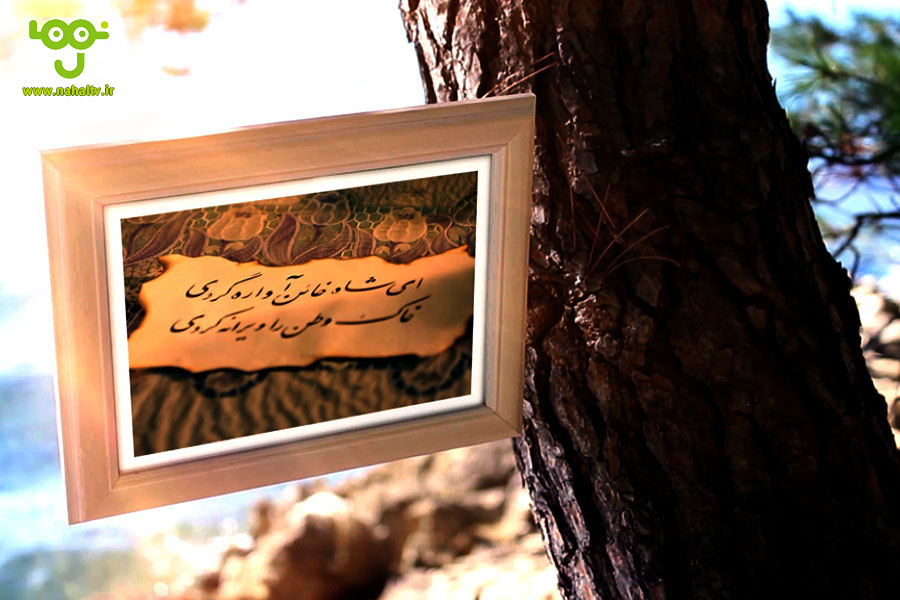 نهال
www.nahaltv.ir
ای شاه خائن آواره گردی
خاک وطن را ویرانه کردی